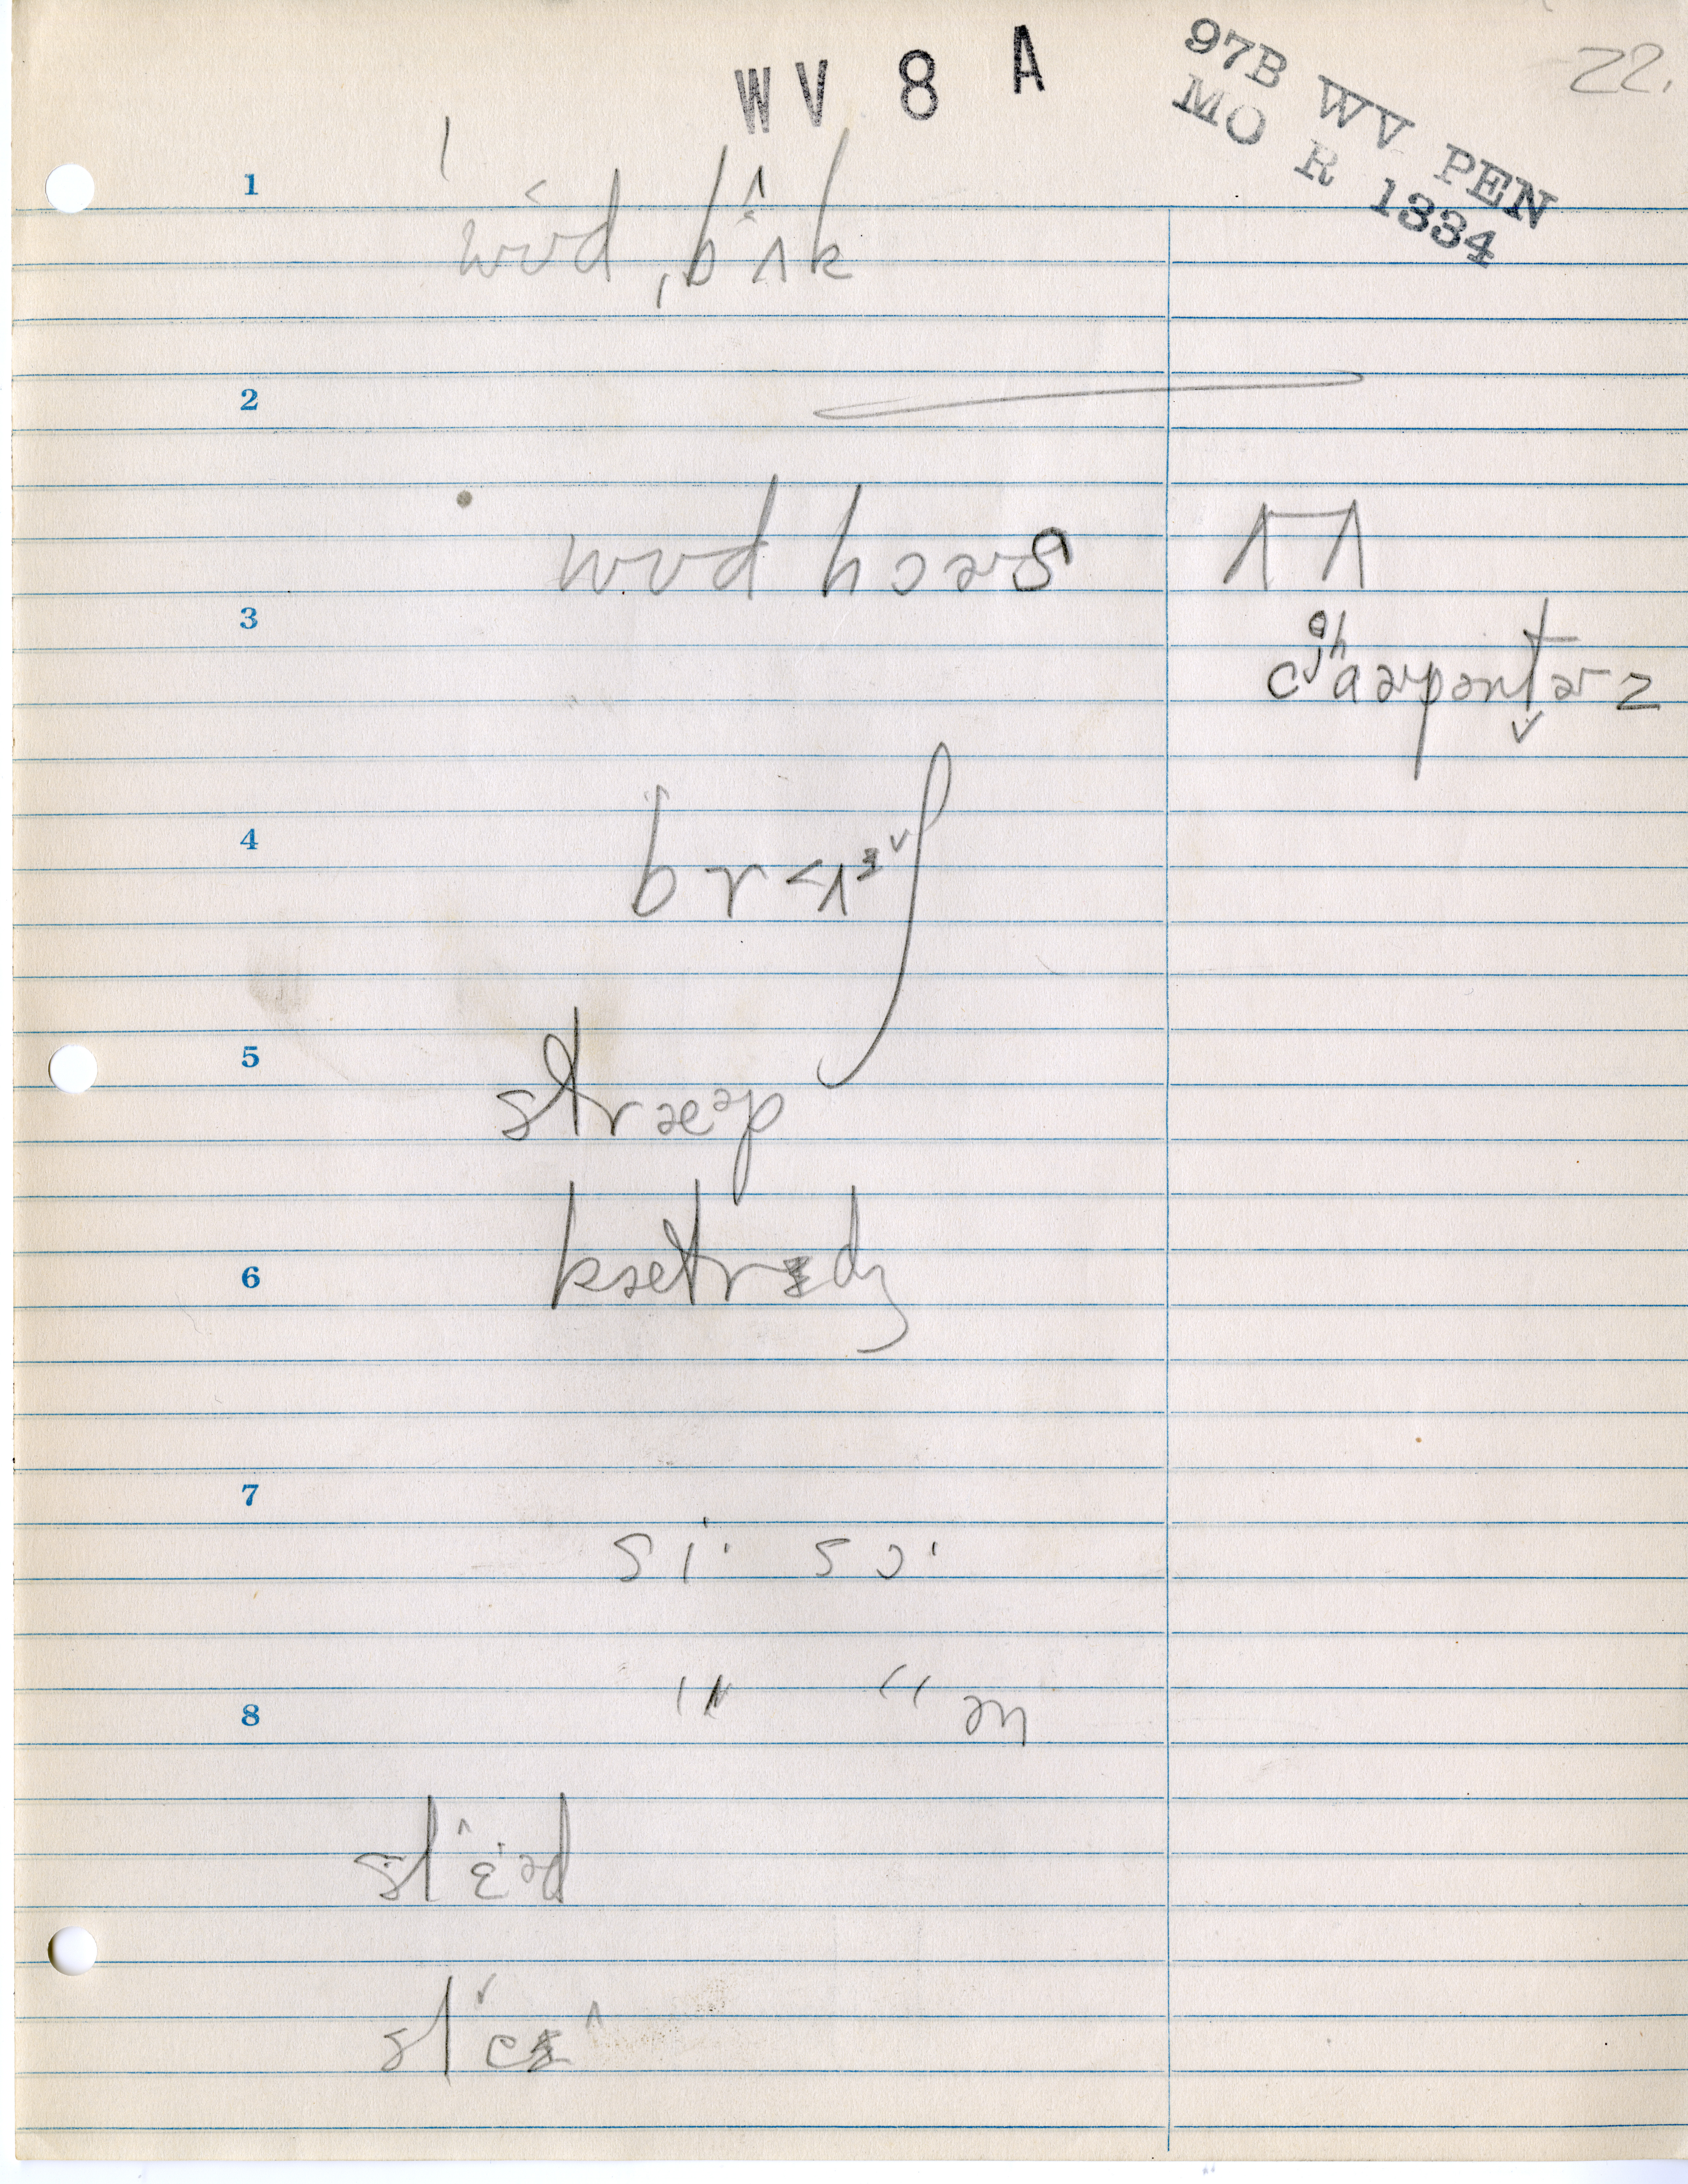 WV 8 A
97B WV PEN
MO R 1334
22.
1
ˈwʊ˂d ˌbʌ^k
2
wʊd hɔɚs
ʌʌ
3
cʰɑɚpəntɚz
4
br˂ʌɪ˅
5
stræəp
6
kætrɪdʒ
7
si· sɔ·
8
" " ən
slɛ^·əd
sle˅ɪ^